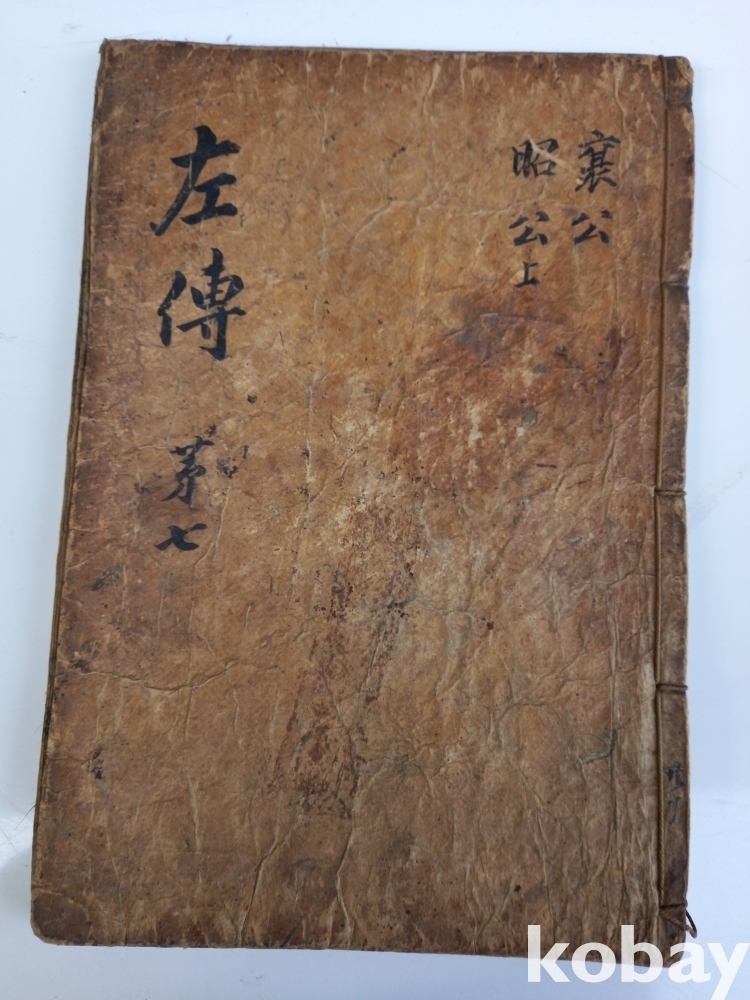 襄公
昭公上
左傳 茅七
kobay